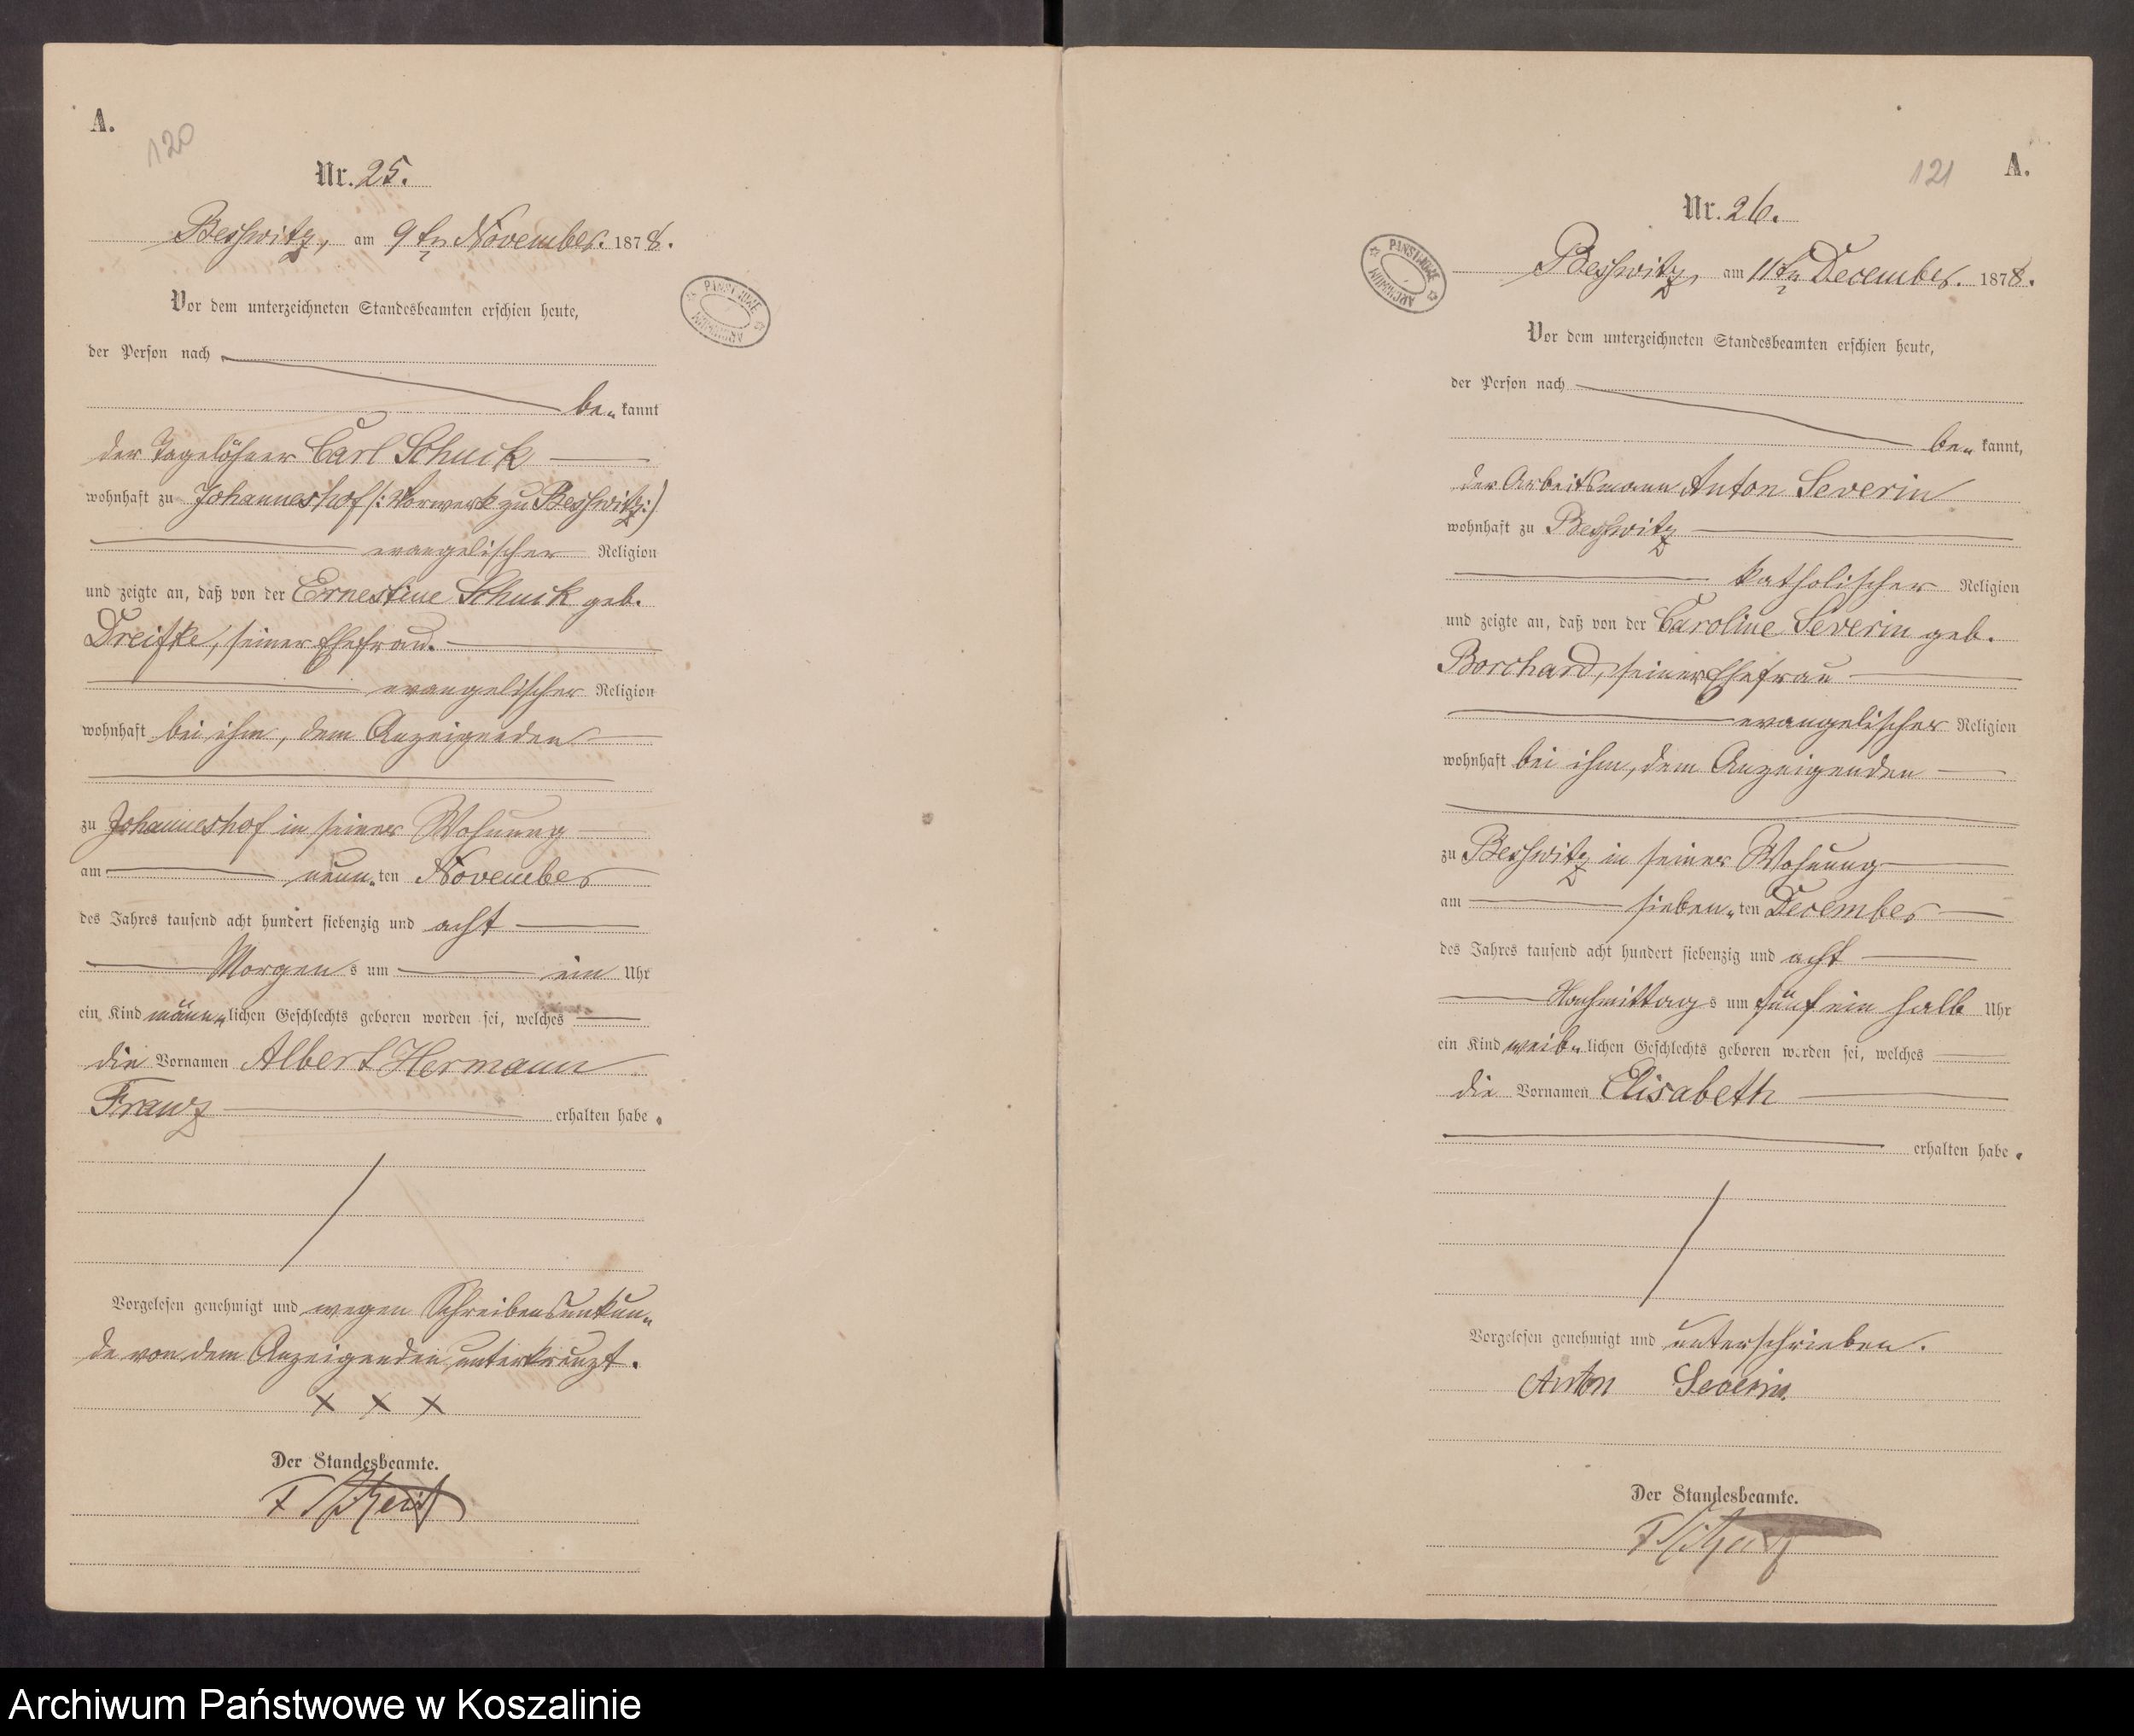 A.
120
Nr. 25.
Beßwitz, am 9ten November. 1878.
Vor dem unterzeichneten Standesbeamten erschien heute,
der Person nach
be„ kannt
der Tagelöhner Carl Schuck
wohnhaft zu Johanneshof /: Vorwerk zu Beßwitz :/
evangelischer Religion
und zeigte an, daß von der Ernestine Schuck geb.
Dreifke, seiner Ehefrau.
evangelischer Religion
wohnhaft bei ihm, dem Anzeigenden
zu Johanneshof in seiner Wohnung
am neun„ten November
des Jahres tausend acht hundert siebenzig und acht
Morgens um ein Uhr
ein Kind männ„lichen Geschlechts geboren worden sei, welches
die Vornamen Albert Hermann
Franz erhalten habe.
Vorgelesen genehmigt und wegen Schreibensunkun„
de von dem Anzeigenden unterkreuzt.
X X X
Der Standesbeamte.
A.
121
Nr. 26.
PANSTWOWE ARCHIWUM
PANSTWOWE ARCHIWUM
Beßwitz, am 11ten December. 1878.
Vor dem unterzeichneten Standesbeamten erschien heute,
der Person nach
be„ kannt,
der Arbeitsmann Anton Severin
wohnhaft zu Beßwitz
katholischer Religion
und zeigte an, daß von der Caroline Severin geb.
Borchard, seiner Ehefrau
evangelischer Religion
wohnhaft bei ihm, dem Anzeigenden
zu Beßwitz in seiner Wohnung
am sieben„ten December
des Jahres tausend acht hundert siebenzig und acht
Nachmittags um fünf ein halb Uhr
ein Kind weib„lichen Geschlechts geboren worden sei, welches
die Vornamen Elisabeth
erhalten habe.
Vorgelesen genehmigt und unterschrieben.
Anton Severin.
Der Standesbeamte.
Archiwum Państwowe w Koszalinie